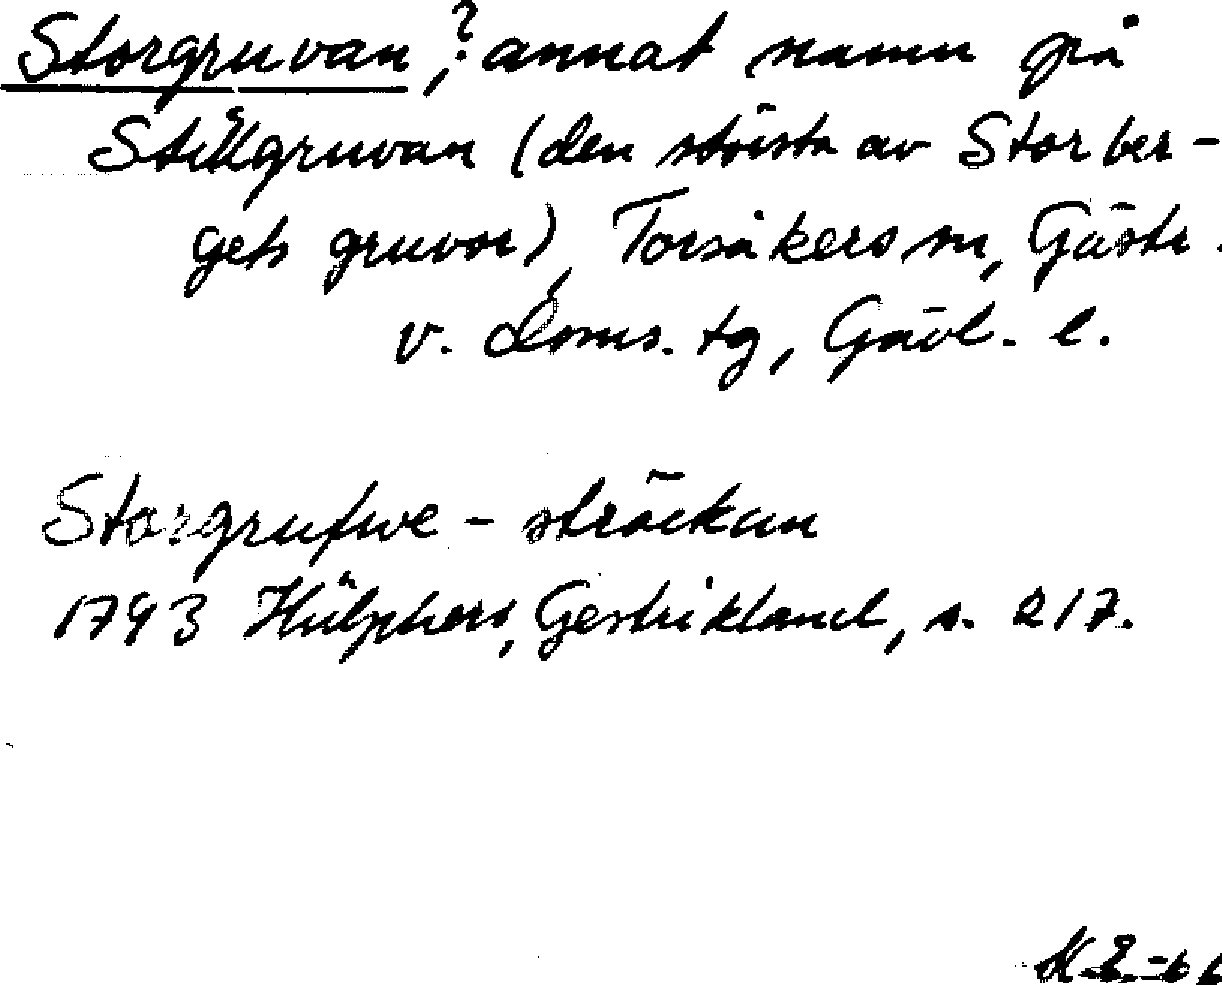 Storgruvan, ? annat namn på
Ställgruvan (den största av Storber-
gets gruvor), Torsåkers sn, Gästr.
v. Doms. tg, Gävl. l.
Storgrufwe - sträckan
1793 Hülphers, Gestrikland, s. 217.